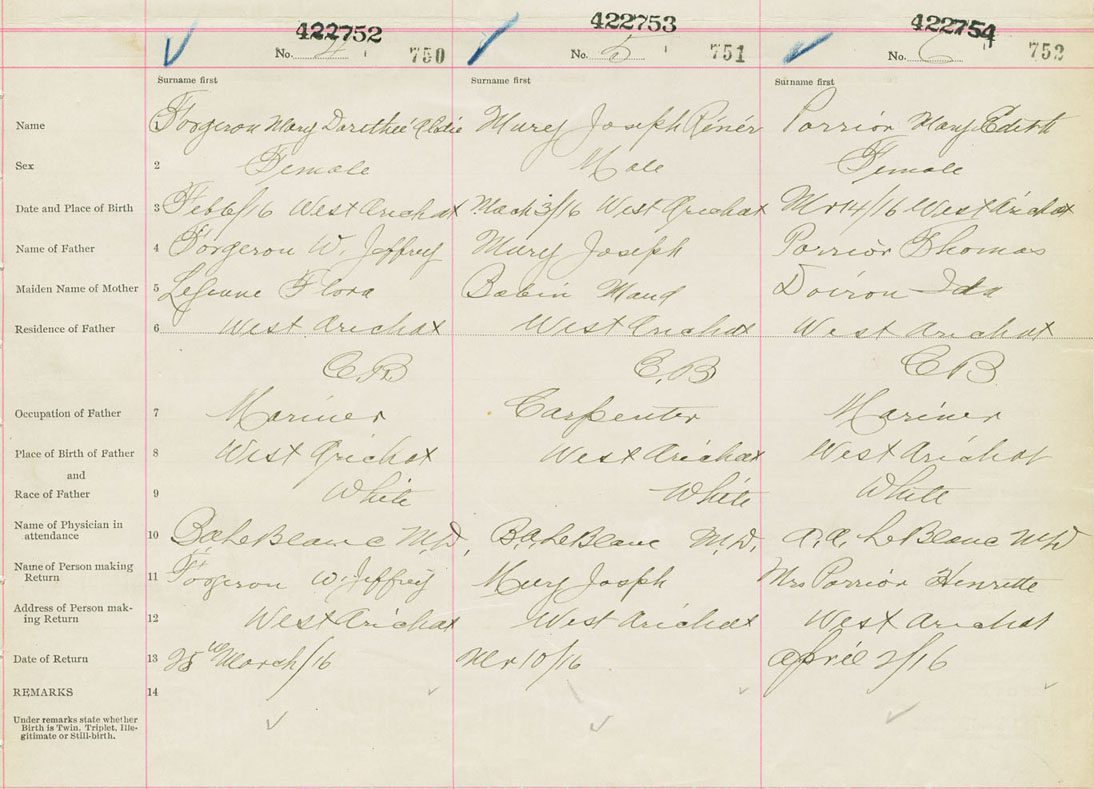 422752 422753 422754
No. 4 750 No. 5 751 No. 6 752
Surname first Surname first Surname first
Name 1 Forgeron Mary Dorithée Mury Joseph Rénér Porrior Mary Edith
Sex 2 Female Male Female
Date and Place of Birth 3 Feb 6/16 West Arichat March 3/16 West Arichat Mr 14/16 West Arichat
Name of Father 4 Forgeron W. Jeffrey Mury Joseph Porrior Thomas
Maiden Name of Mother 5 Flora Babin Maud Doiron Ida
Residence of Father 6 West Arichat West Arichat West Arichat
C.B. C.B C B
Occupation of Father 7 Mariner Carpenter Mariner
Place of Birth of Father 8 West Arichat West Arichat West Arichat
and
Race of Father 9 White White White
Name of Physician in
attendance 10 LeBlanc M.D. B.A. LeBlanc M.D. LeBlanc M D
Name of Person making
Return 11 Forgeron W. Jeffrey Mury Joseph Mrs Porrior Henrette
Address of Person mak-
ing Return 12 West Arichat West Arichat West Arichat
Date of Return 13 March/16 Mr 10/16 April 2/16
REMARKS 14
Under remarks state whether
Birth is Twin, Triplet, Ille-
gitimate or Still-birth.